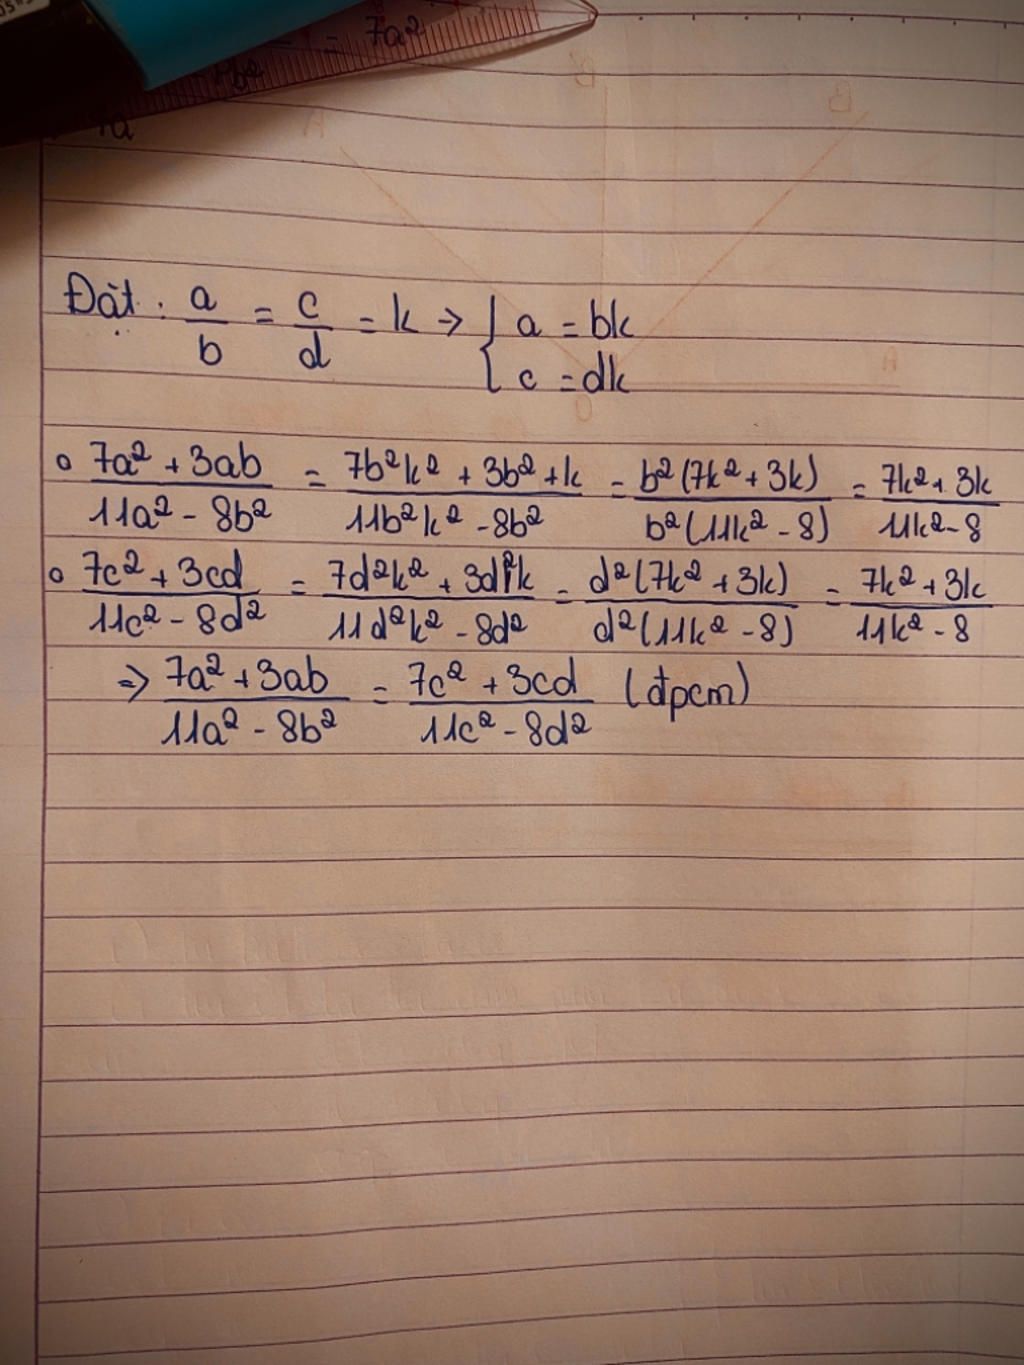 = 7a²
8b²
7a
Đặt : a/b = c/d = k → { a = bk
c = dk
∘ (7a² + 3ab)/(11a² - 8b²) = (7b²k² + 3b² + k)/(11b²k² - 8b²) = b²(7k² + 3k)/b²(11k² - 8) = (7k² + 3k)/(11k² - 8)
∘ (7c² + 3cd)/(11c² - 8d²) = (7d²k² + 3d²k)/(11d²k² - 8d²) = d²(7k² + 3k)/d²(11k² - 8) = (7k² + 3k)/(11k² - 8)
⇒ (7a² + 3ab)/(11a² - 8b²) = (7c² + 3cd)/(11c² - 8d²) (đpcm)